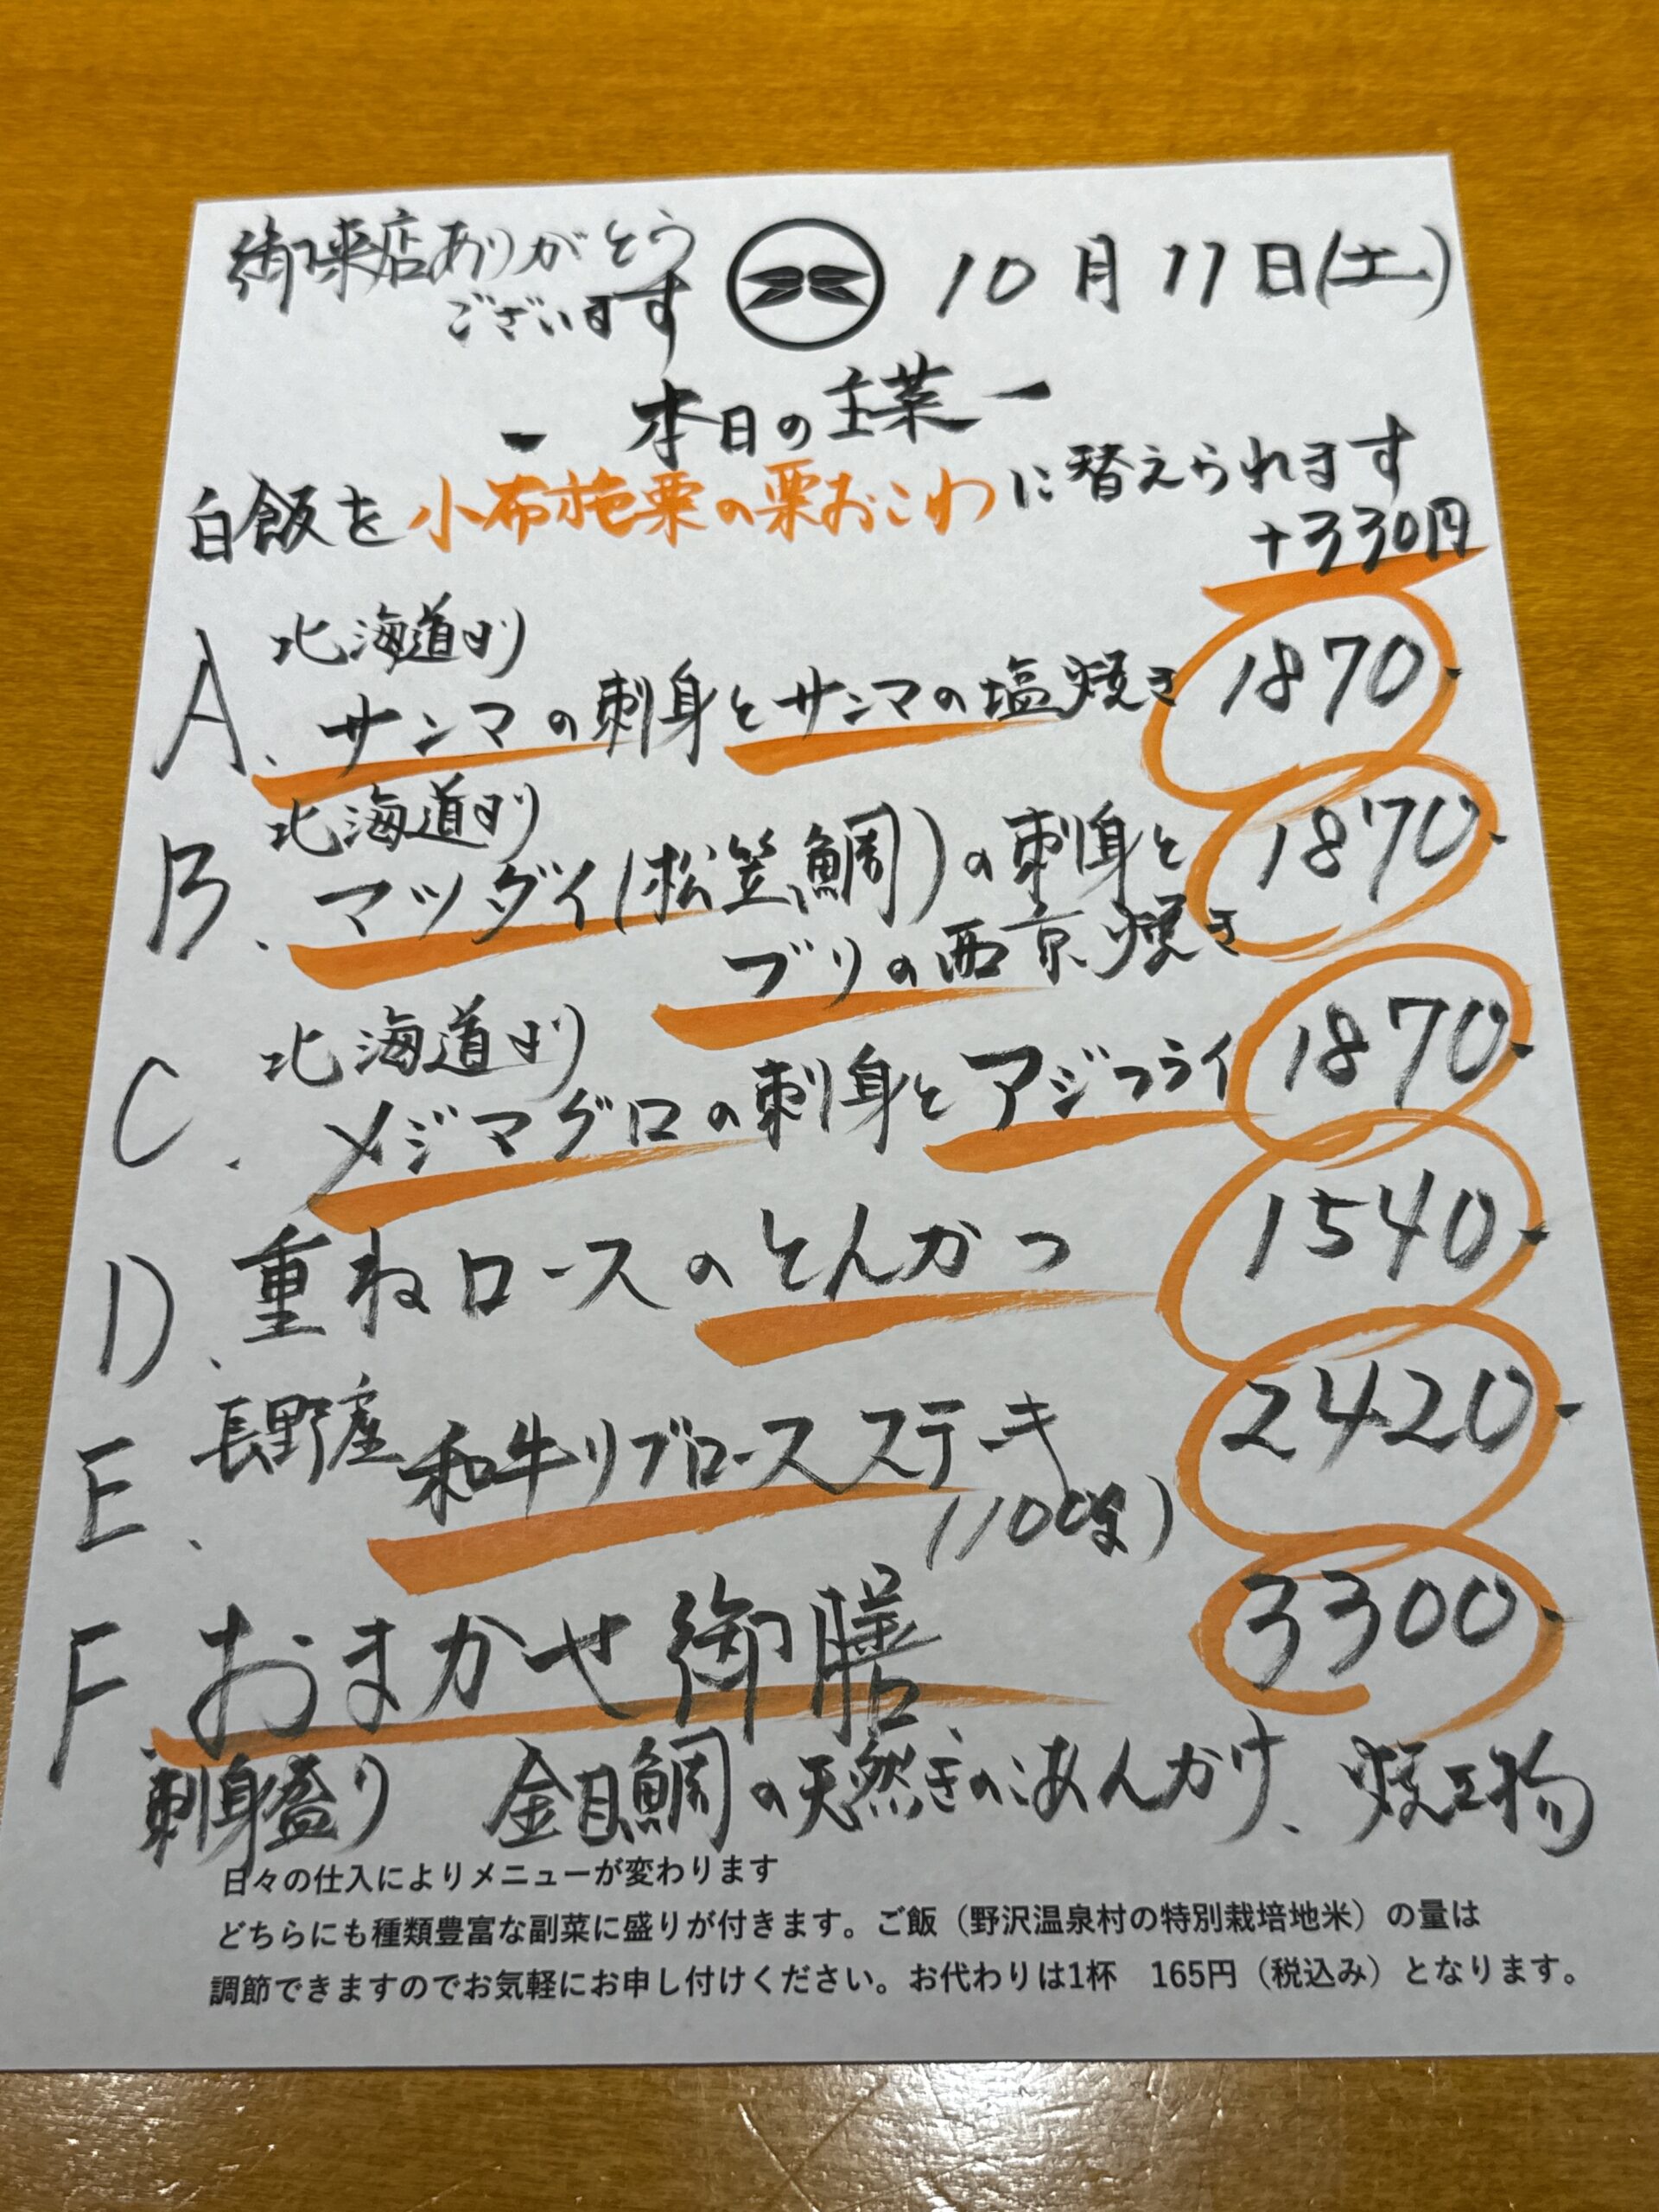 御来店ありがとう
ございます
10月11日(土)
- 本日の主菜 -
白飯を小布施栗の栗おこわに替えられます
+330円
北海道より
A. サンマの刺身とサンマの塩焼き 1870.-
北海道より
B. マツダイ(松笠鯛)の刺身と 1870.-
ブリの西京焼き
北海道より
C. メジマグロの刺身とアジフライ 1870.-
D. 重ねロースのとんかつ 1540.-
E. 長野産 和牛リブロースステーキ 2420.-
F. おまかせ御膳 3300.-
刺身盛り 金目鯛の天然きのこあんかけ、焼物
日々の仕入によりメニューが変わります
どちらにも種類豊富な副菜に盛りが付きます。ご飯（野沢温泉村の特別栽培地米）の量は
調節できますのでお気軽にお申し付けください。お代わりは1杯 165円（税込み）となります。